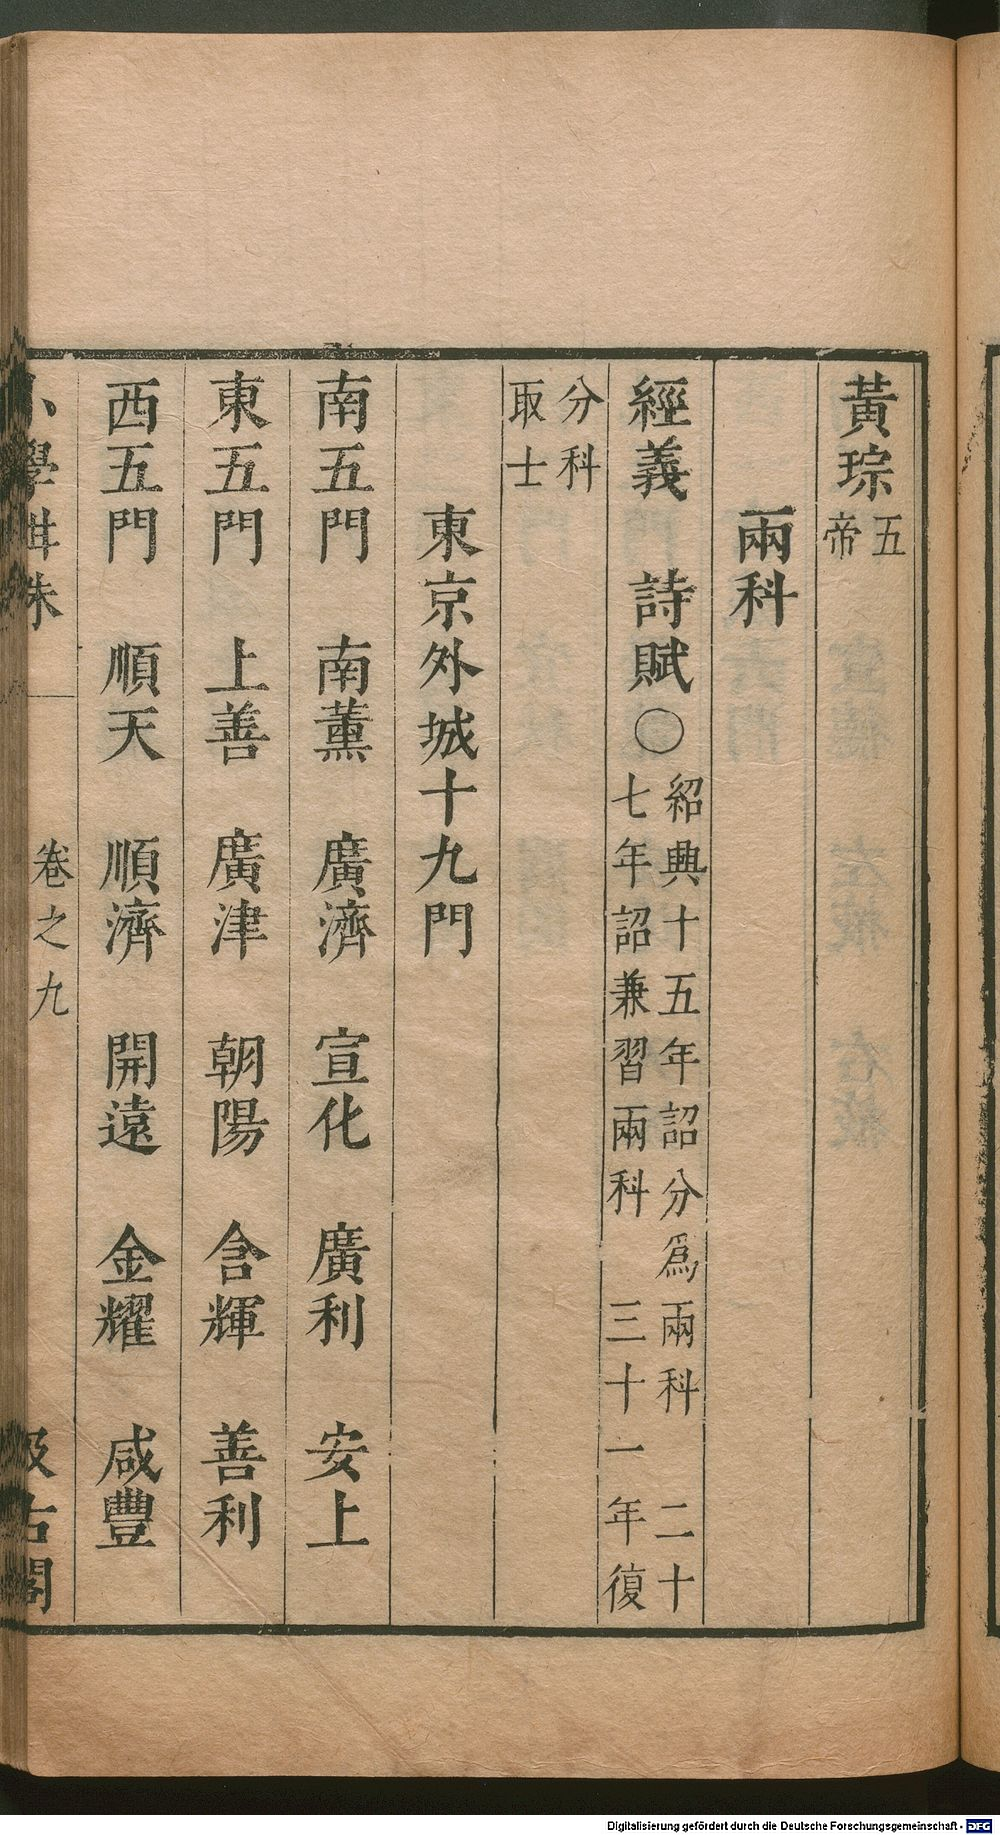 黃琮五帝
兩科
經義　詩賦〇紹興十五年詔分爲兩科　二十七年詔兼習兩科　三十一年復
分科取士
東京外城十九門
南五門　南薰　廣濟　宣化　廣利　安上
東五門　上善　廣津　朝陽　含輝　善利
西五門　順天　順濟　開遠　金耀　咸豐
小學紺珠　卷之九　汲古閣
Digitalisierung gefördert durch die Deutsche Forschungsgemeinschaft - DFG